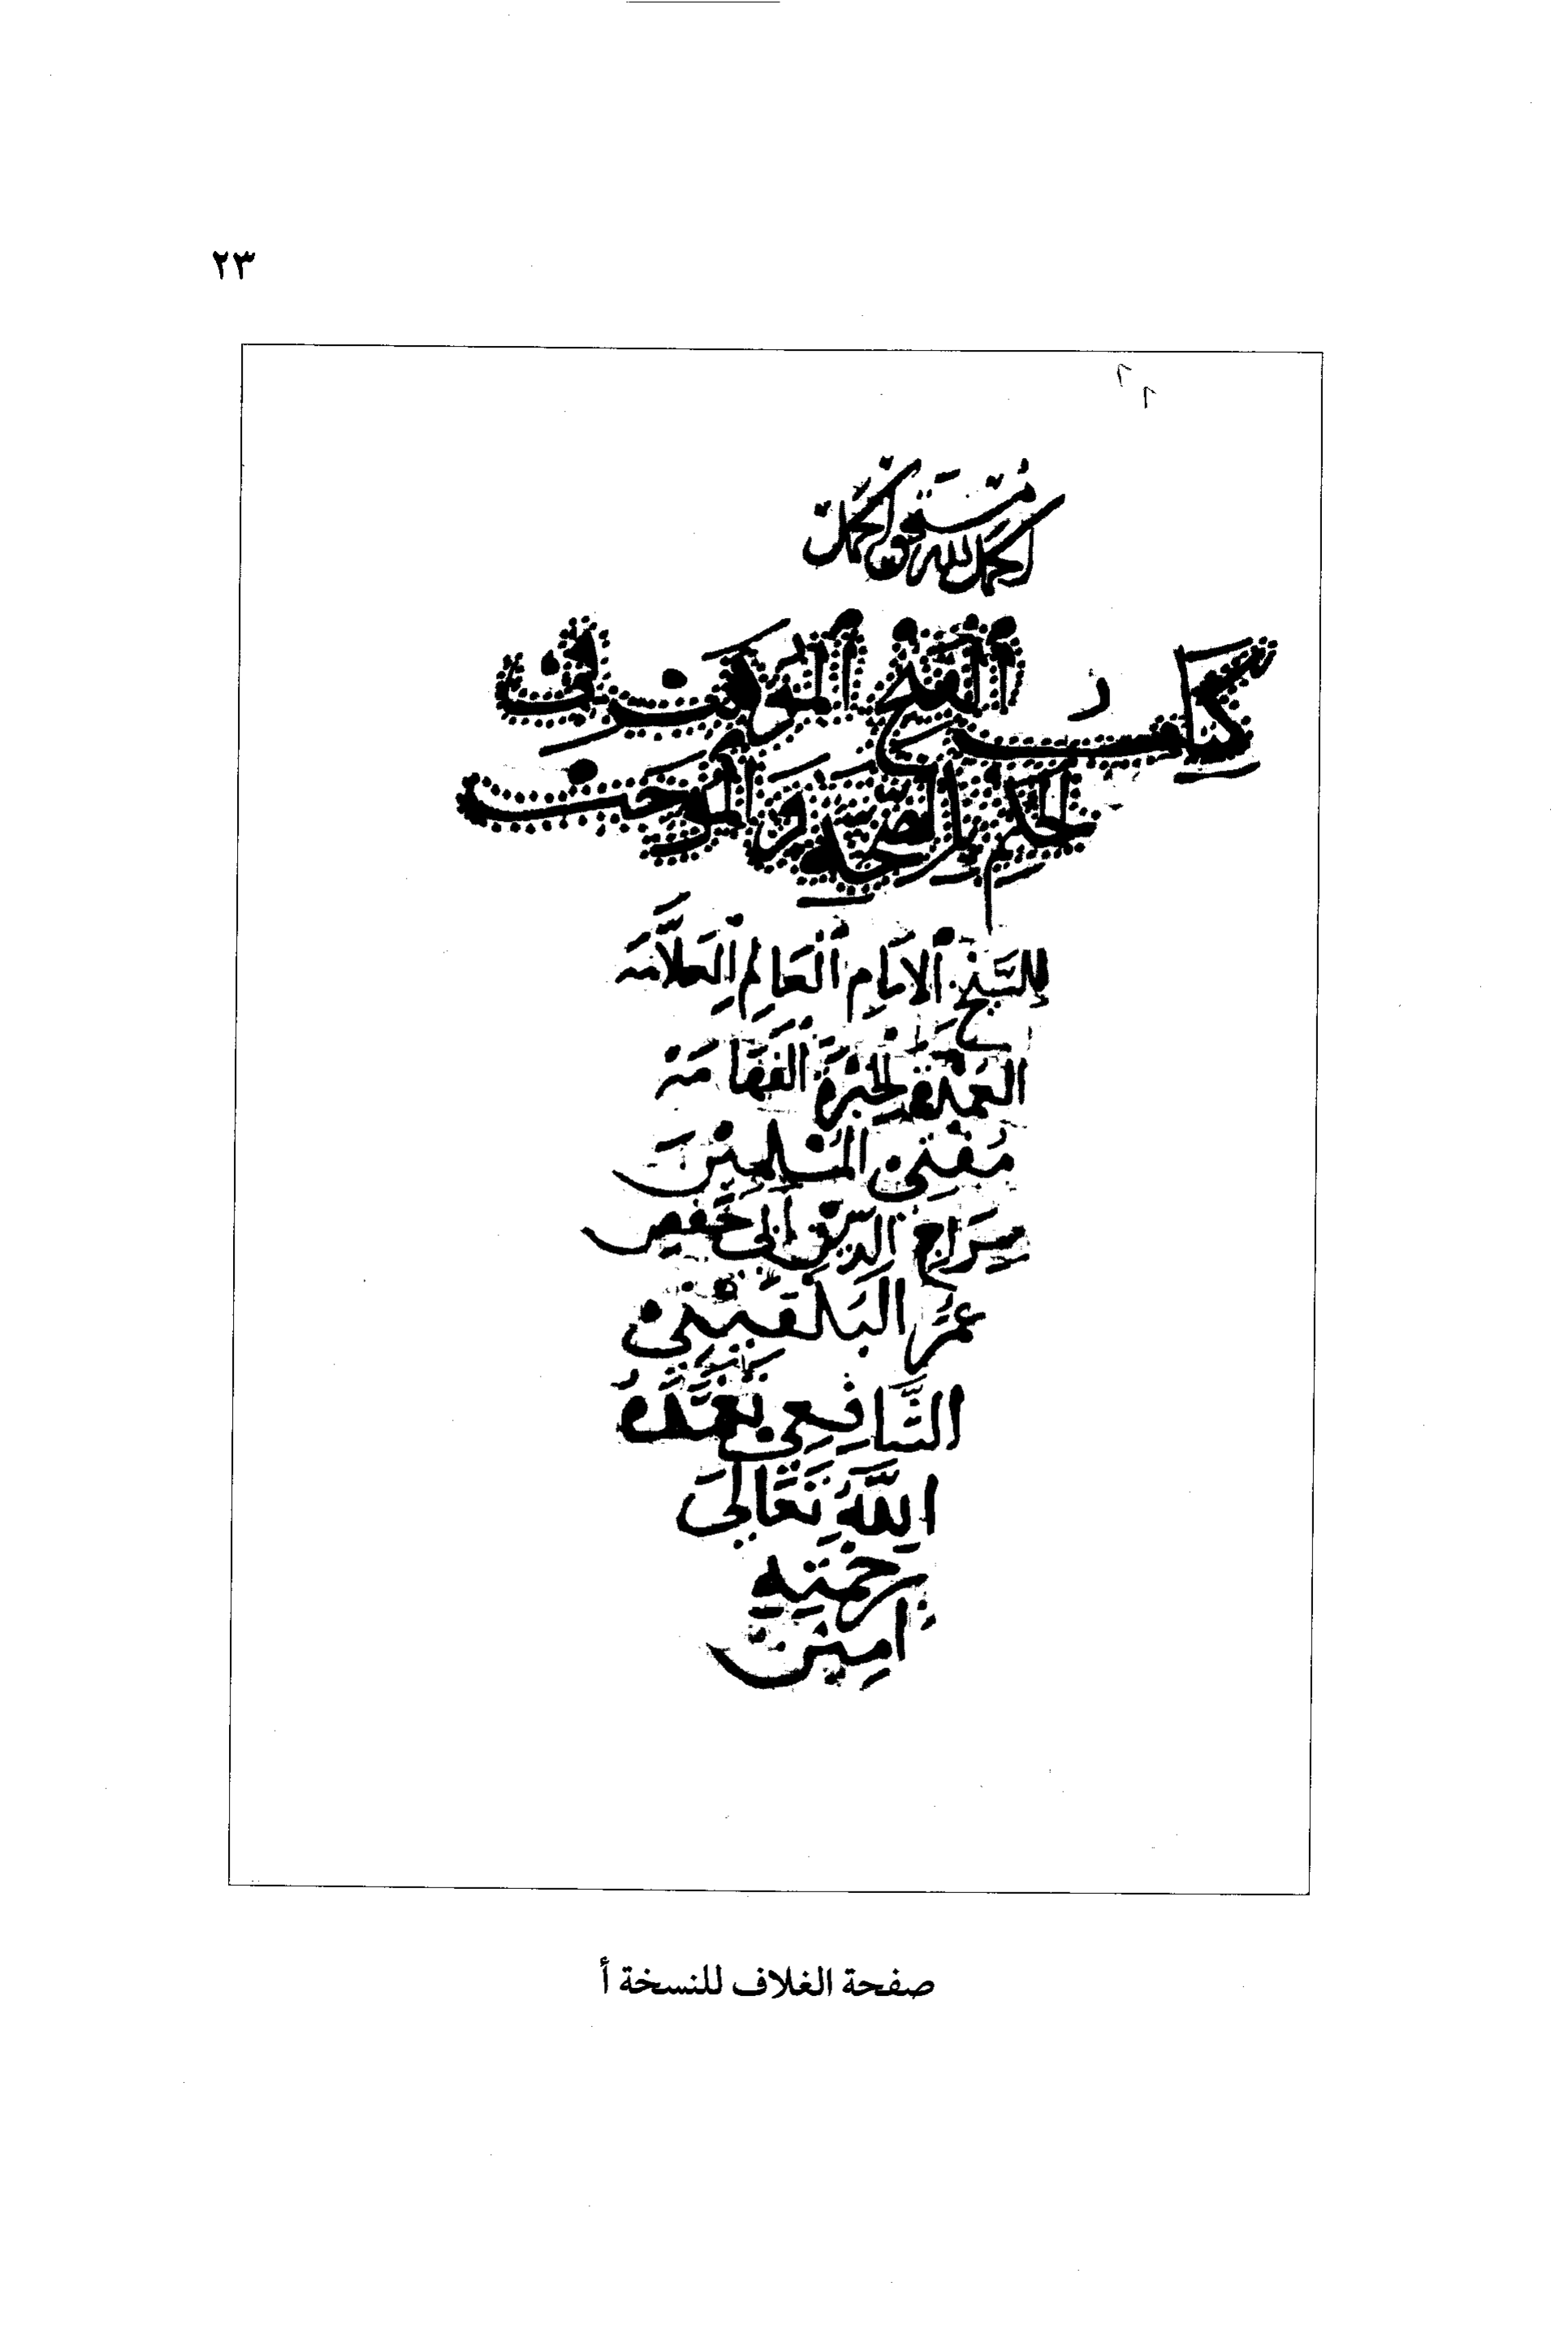 ٢٣
الحمد لله
كتاب الفتح الموهب في
الحكم بالصحة والموجب
للشيخ الامام العالم العلامه
العمدة الحبرة الفهامة
مفتي المسلمين
سراج الدين ابي حفص
عمر البلقيني
الشافعي تغمده
الله تعالى
برحمته
امين
صفحة الغلاف للنسخة أ